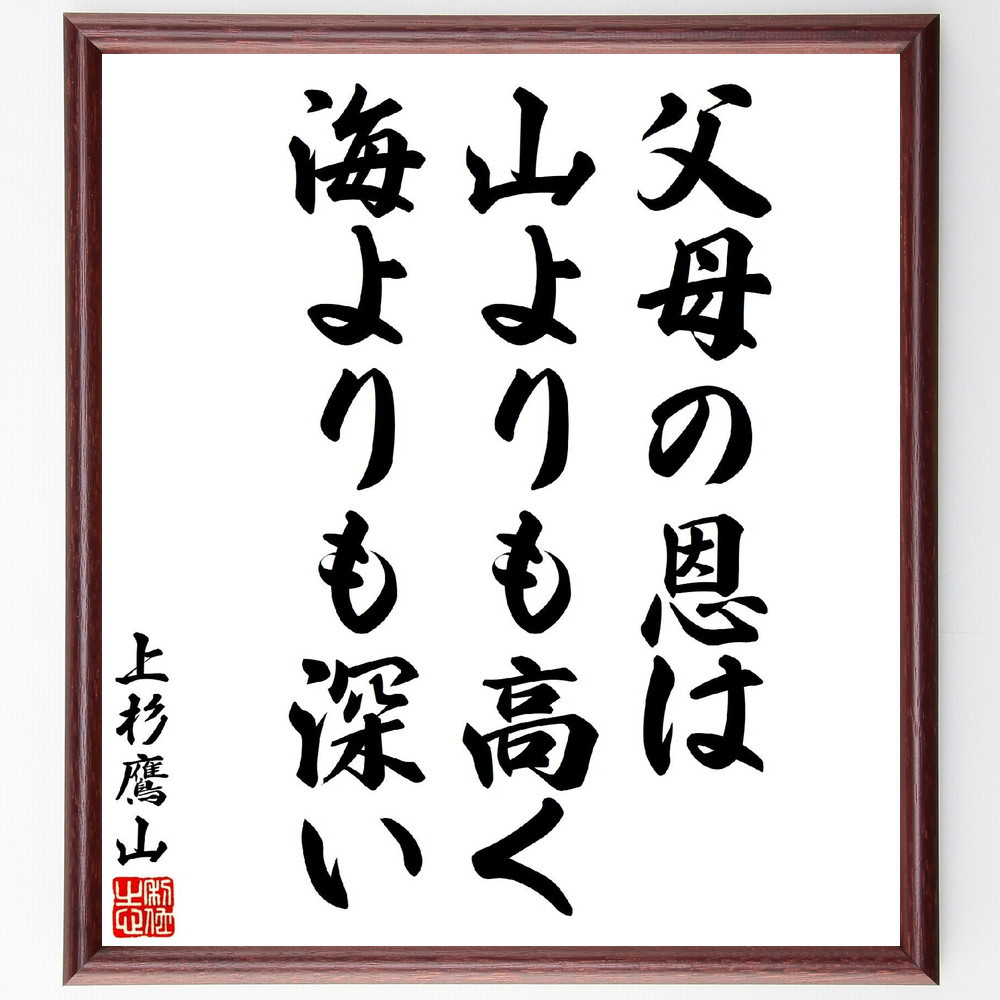 父母の恩は
山よりも高く
海よりも深い
上杉鷹山